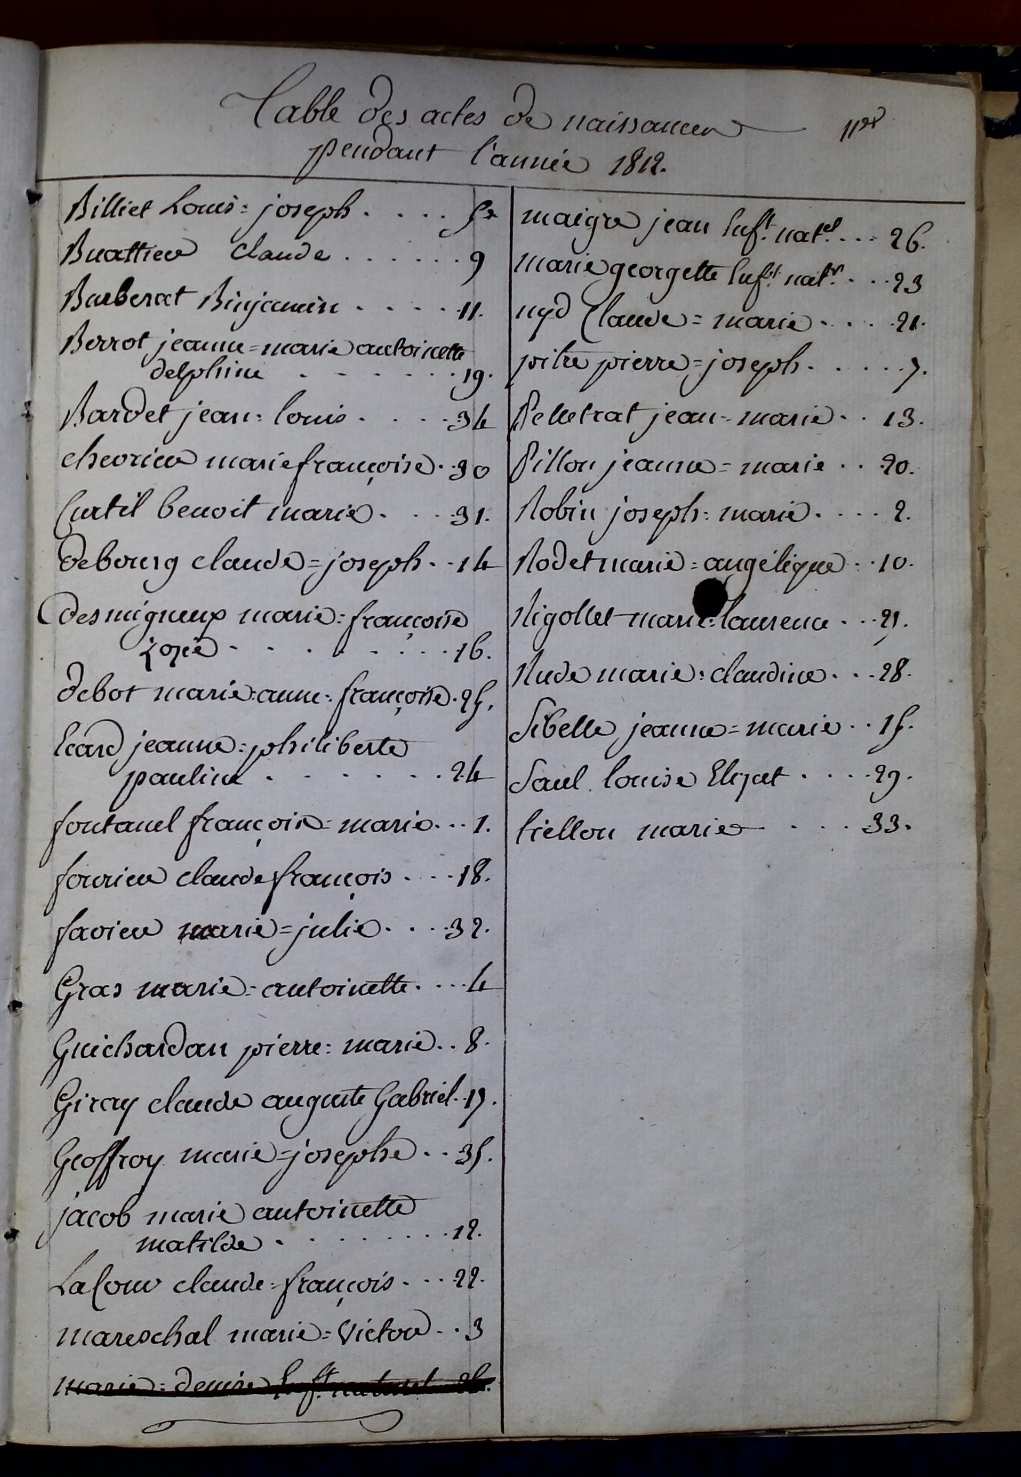 Table des actes de naissances
pendant l'année 1812.
Billiet Louis = joseph . . . . 5
Buattier claude . . . . . . 9
Barberat Binjamin . . . . . 11.
Berrot jeanne = marie antoinette
delphine . . . . . . . 19.
Bardet jean = louis . . . . 34
chevrier marie françoise . . 30
Curtil benoit marie . . . 31.
debourg claude = joseph . . 14
desmigneux marie = françoise
. . . . . . . 16.
debot marie anne = françoise . 25.
Ecard jeanne = philiberte
pauline . . . . . . . 24
fontanel françois = marie . . . 1.
fourier claude françois . . . 18.
favier marie = julie . . . . 32.
Gras marie = antoinette . . . . 4
Guichardan pierre = marie . . 8.
Giray claude auguste Gabriel . 17.
Geoffroy marie = josephe . . 35.
jacob marie antoinette
matilde . . . . . . . . 12.
LaCour claude = françois . . . 22.
mareschal marie = Victor . . 3
marie = denise Enft. naturel 26.
maigre jean Enft. natel. . . . 26.
marie georgette Enft. natr. . . . 23
nyd Claude = marie . . . . 21.
pitre pierre = joseph . . . . . 7.
Pelletrat jean = marie . . 13.
Pillon jeanne = marie . . 20.
Robin joseph = marie . . . . 2.
Rodet marie = angélique . . 10.
Rigollet marie = laurence . . . 27.
Rude marie = claudine . . . 28.
Sibelle jeanne = marie . . 15.
Saul louise Elizat . . . . 29.
tiellon marie . . . 33.